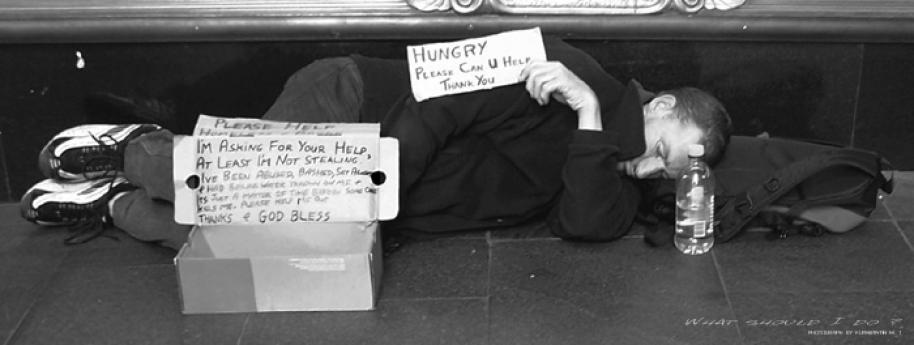 HUNGRY
PLEASE CAN U HELP
THANK YOU
PLEASE HELP
I'M ASKING FOR YOUR HELP,
AT LEAST I'M NOT STEALING.
I'VE BEEN ABUSED, BASHED, SET
HAD BOILING WATER THROWN ON ME +
ITS JUST A MATTER OF TIME BEFORE SOME ONE
KILLS ME. PLEASE HELP ME OUT
THANKS & GOD BLESS
WHAT SHOULD I DO?
PHOTOGRAPH BY